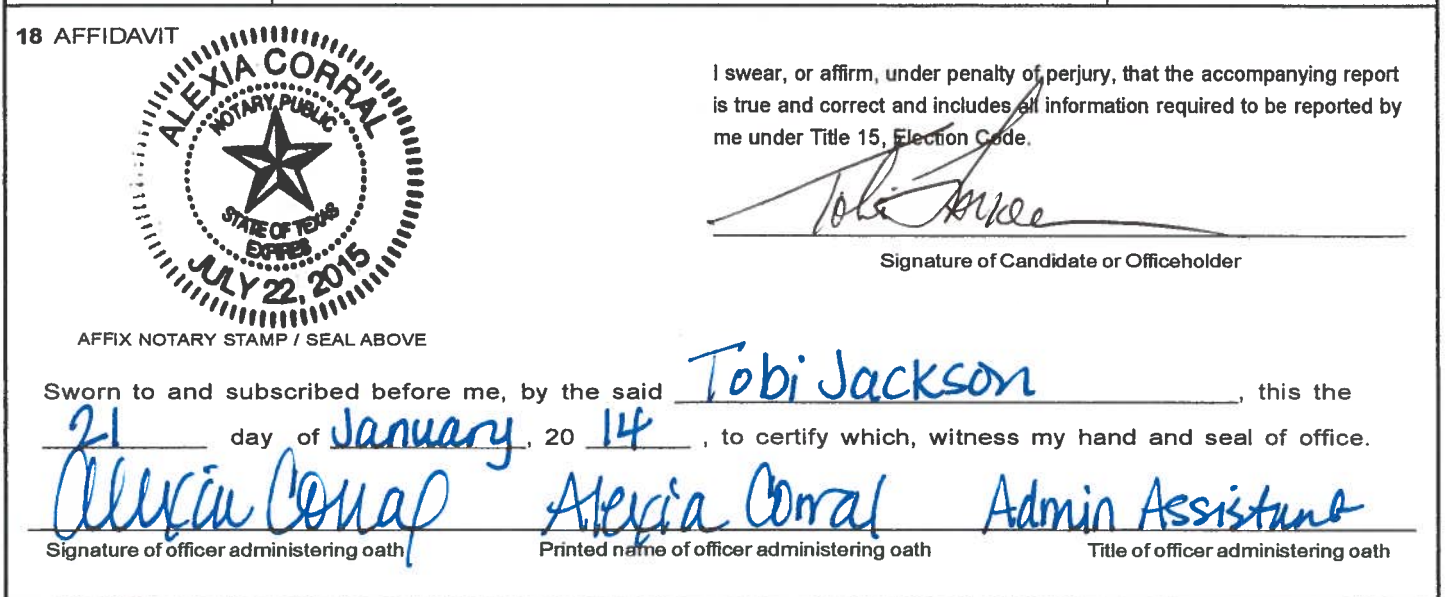 18 AFFIDAVIT
ALEXIA CORRAL
NOTARY PUBLIC
STATE OF TEXAS
EXPIRES
JULY 22, 2015
AFFIX NOTARY STAMP / SEAL ABOVE
I swear, or affirm, under penalty of perjury, that the accompanying report
is true and correct and includes all information required to be reported by
me under Title 15, Election Code.
Tobi Jackson
Signature of Candidate or Officeholder
Sworn to and subscribed before me, by the said Tobi Jackson, this the
21 day of January, 20 14, to certify which, witness my hand and seal of office.
Alexia Corral Alexia Corral Admin Assistant
Signature of officer administering oath Printed name of officer administering oath Title of officer administering oath